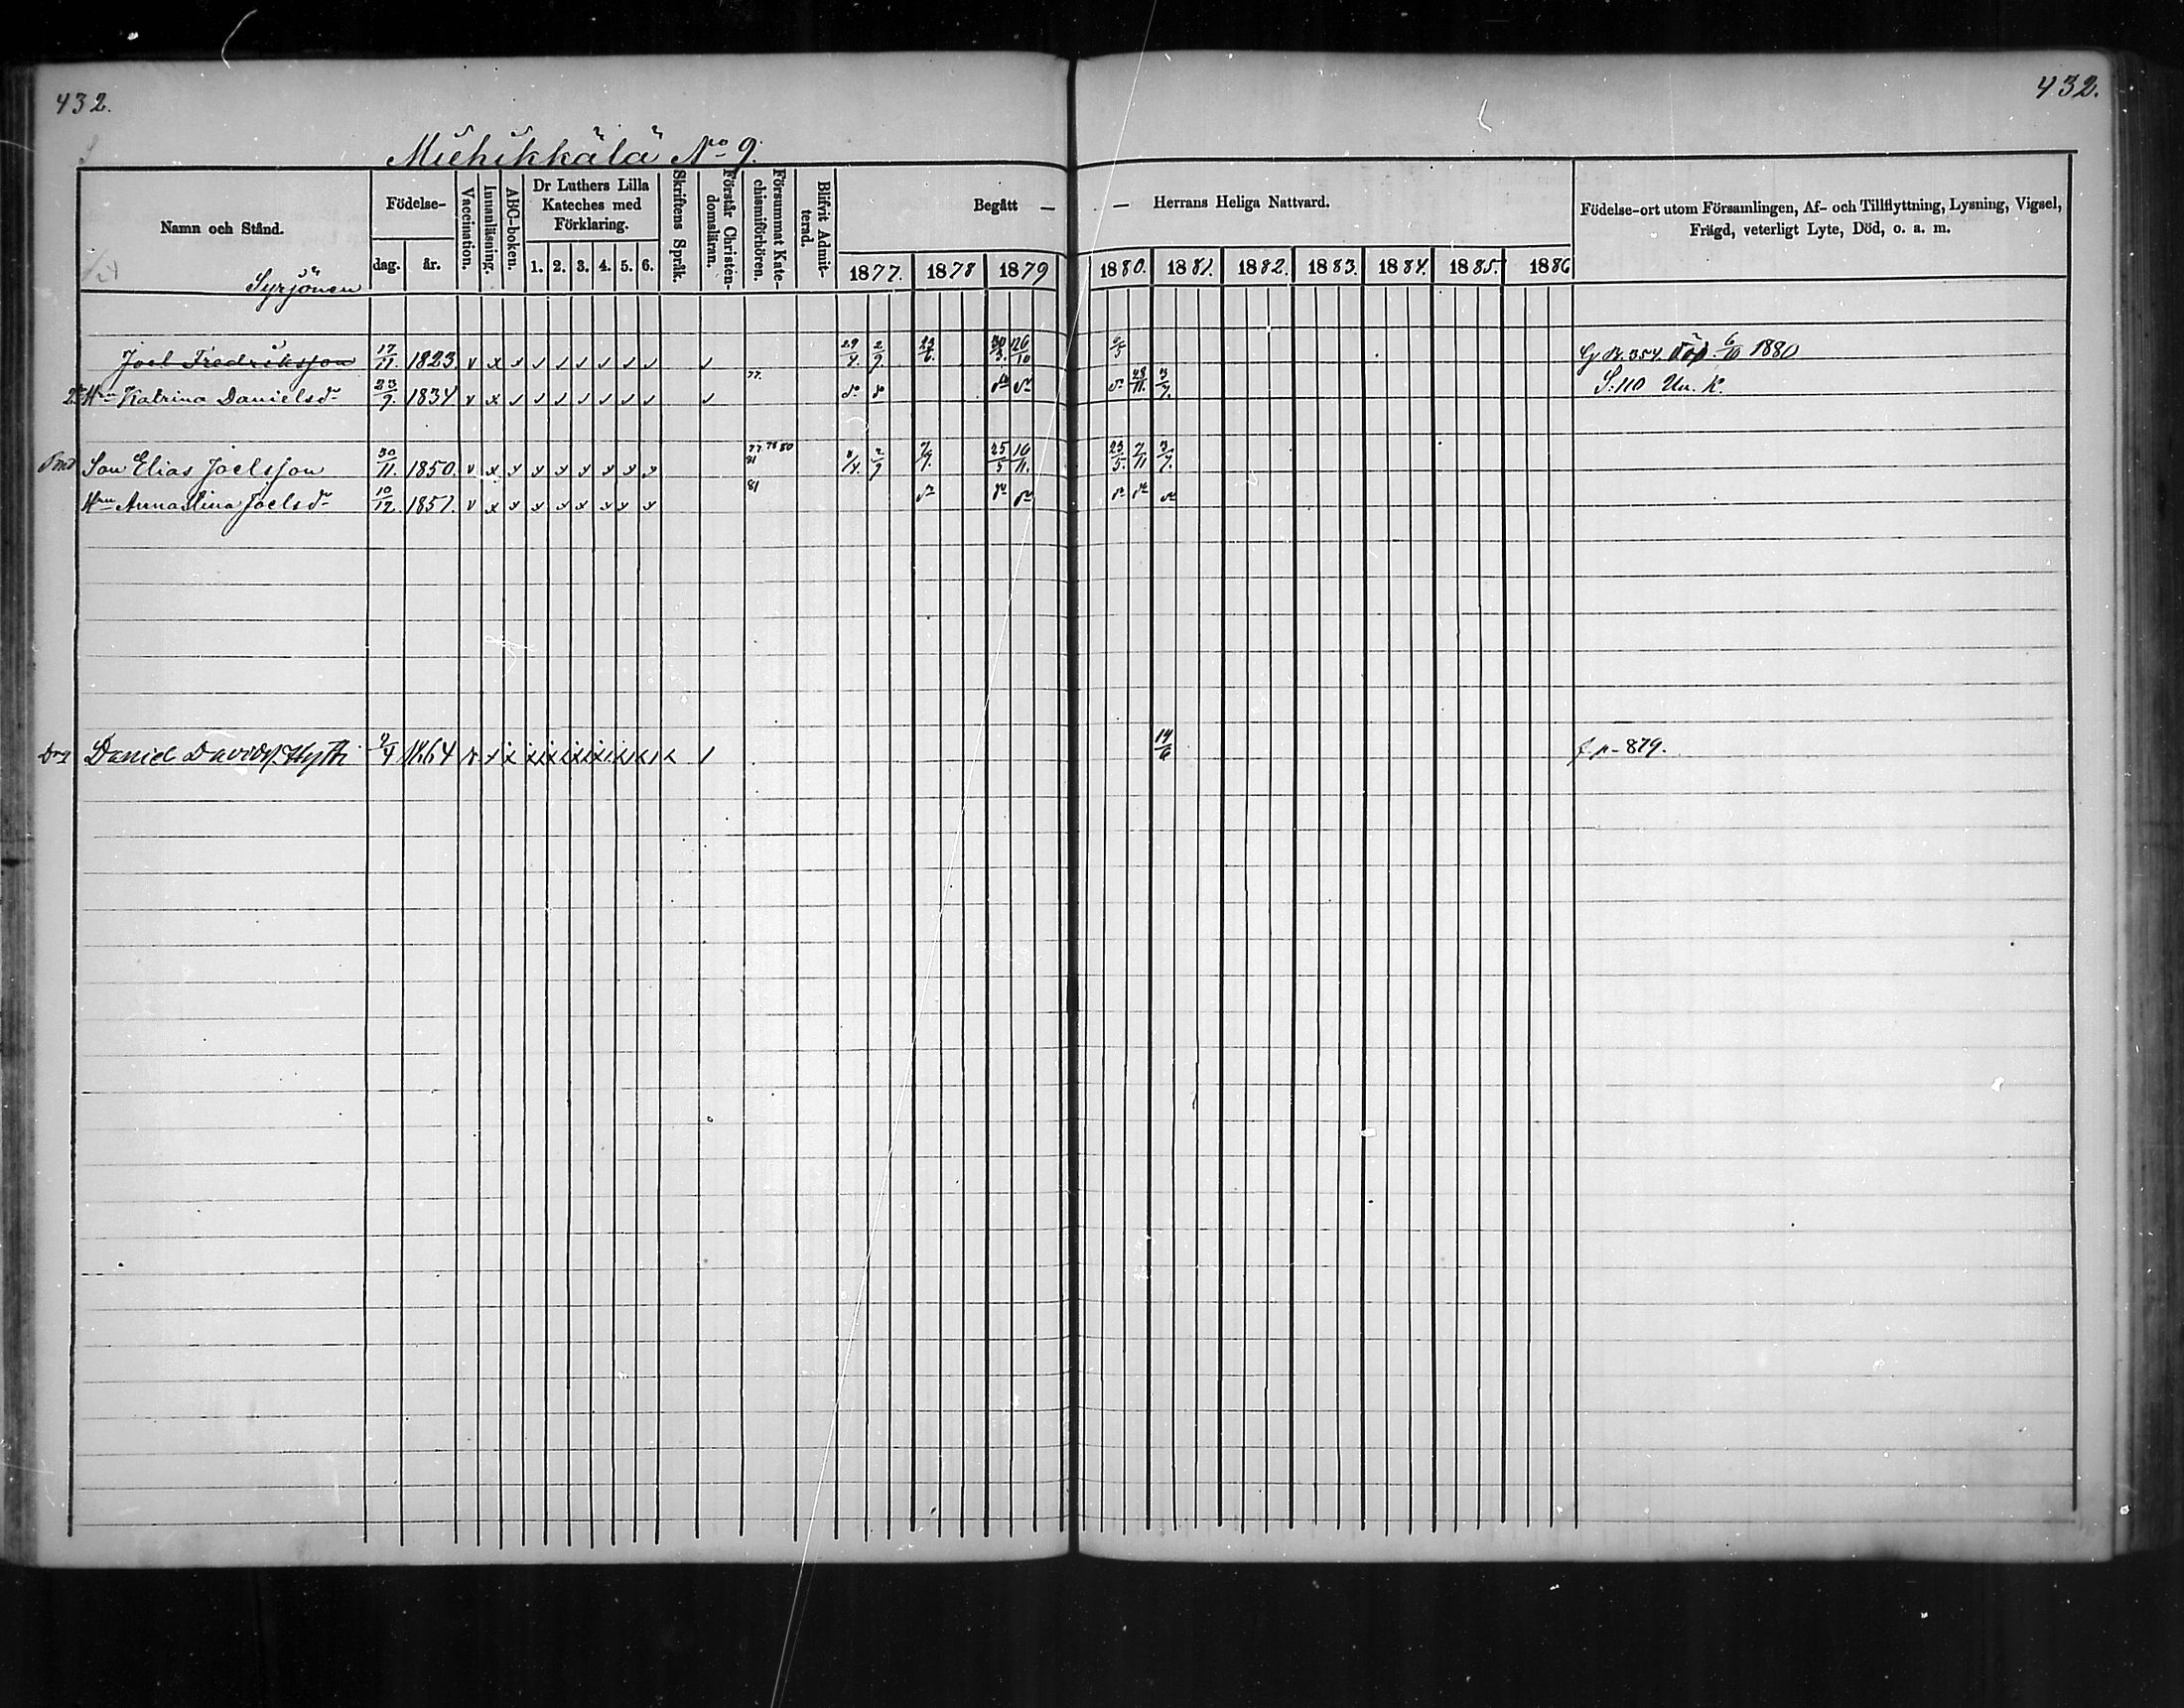 432.
432.
Miehikkälä No 9.
Namn och Stånd.
Födelse-
dag.
år.
Vaccination.
Innanläsning.
ABC-boken.
Dr Luthers Lilla Kateches med Förklaring.
1. 2. 3. 4. 5. 6.
Skriftens Språk.
Förstår Christendomsläran.
Försummat Katechismiförhören.
Blifvit Admitterad.
Begått — — Herrans Heliga Nattvard.
1877. 1878 1879 1880. 1881. 1882. 1883. 1884. 1885. 1886
Födelse-ort utom Församlingen, Af- och Tillflyttning, Lysning, Vigsel,
Frägd, veterligt Lyte, Död, o. a. m.
Syrjönen
Joel Fredriksson 17/11. 1823. v x x 29/4. 2/9. 23/6. 30/3. 26/10 död 6/10 1880
Hru Katrina Danielsdr 23/9. 1834 v x 77. 28/11. 3/7. S: 110 Un. K.
Son Elias Joelsson 30/11. 1850. v x x x x x x x x 77 78 80 81 2/9 7/7. 25/5 16/11. 23/5. 7/11 3/7.
Hru Anna Stina Joelsdr 10/12. 1857. v x x x x x x x x 81
Drg Daniel Davidss. Hytti 2/4 1864 14/6 f. p. 879.